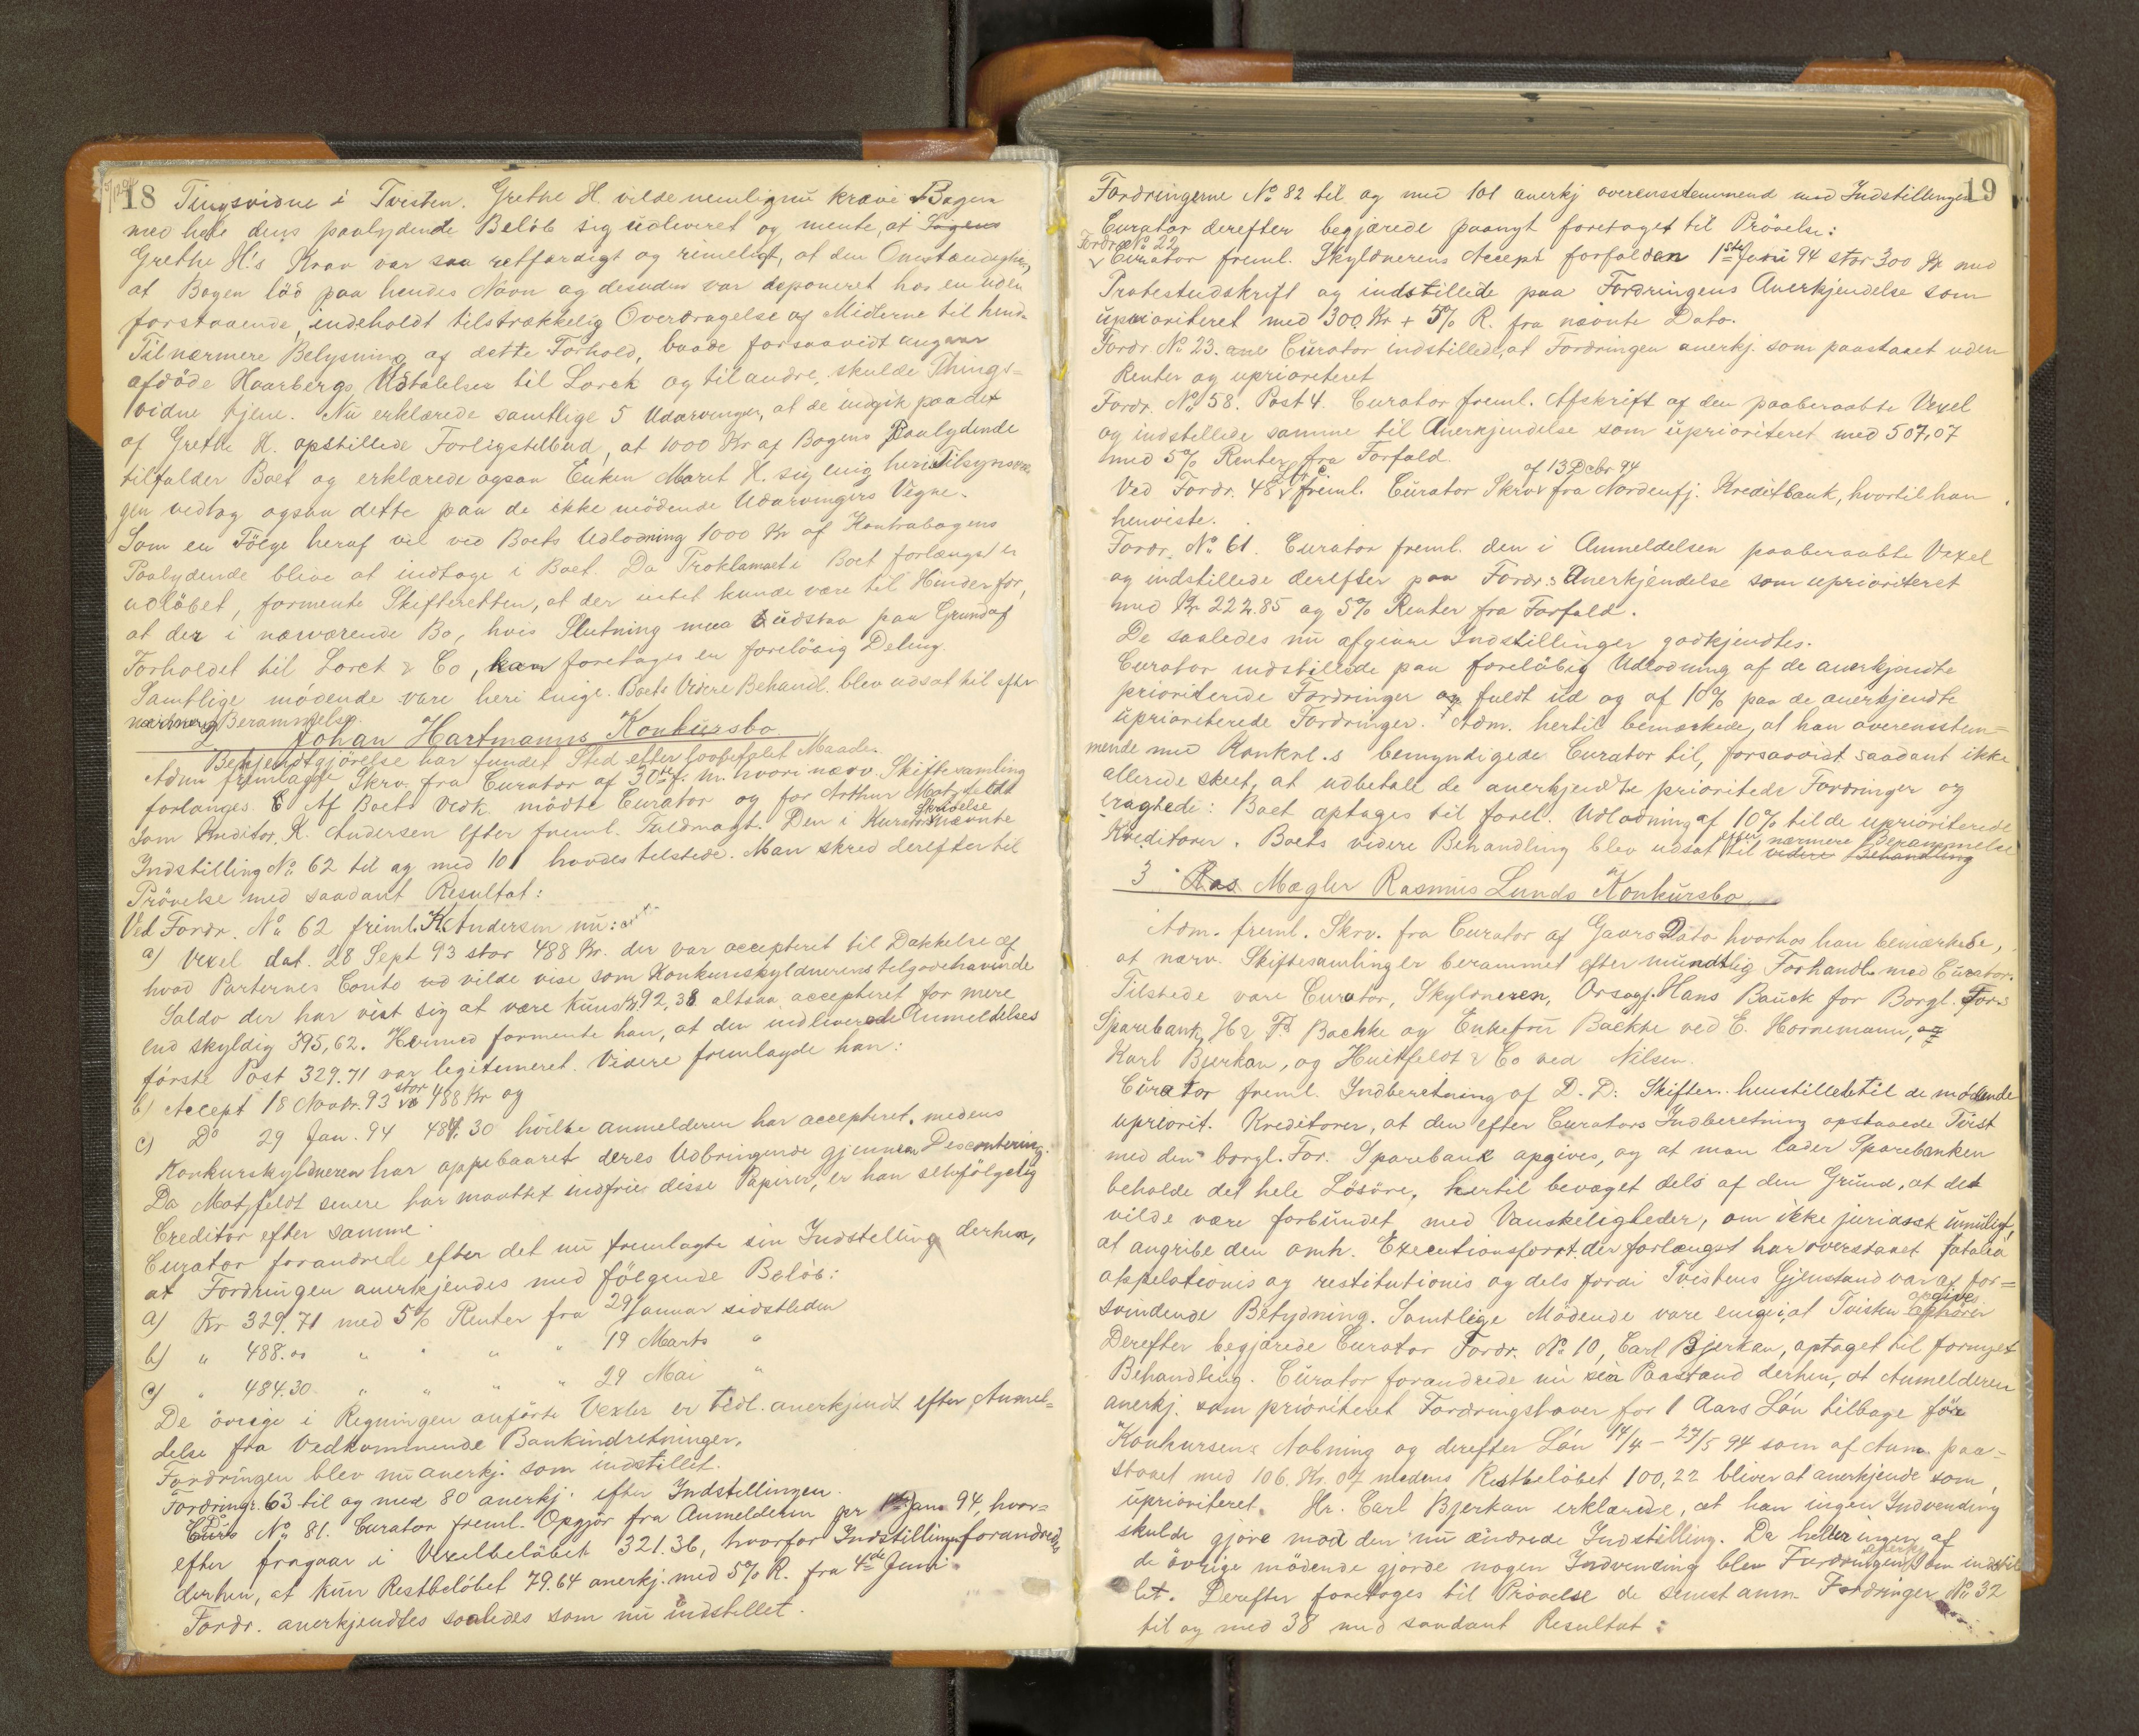 18 Tingsvidne i Tvisten. Grethe H. vilde nemlig nu kræve Bogen
med hele dens paalydende Beløb sig udleveret og mente, at Sagens
Grethe H.'s Krav var saa retfærdigt og rimeligt, at den Omstændighed,
at Bogen løð paa hendes Navn og desuden var deponeret hos en uden
forstaaende, indeholdt tilstrækkelig Overdragelse af Midlerne til hende.
Til nærmere Belysning af dette Forhold, baade forsaavidt angaar
afdøde Haarbergs Udtalelser til Lorck og til andre, skulde Things-
vidne tjene. Nu erklærede samtlige 5 Udarvinger, at de indgik paa det
af Grethe H. opstillede Forligstilbud, at 1000 Kr af Bogens Paalydende
tilfalder Boet og erklærede ogsaa Enken Marit H. sig enig heri. Tilsynsvær
gen vedtog ogsaa dette paa de ikke mødende Udarvingers Vegne.
Som en Følge heraf vil ved Boets Udlodning 1000 Kr af Kontrabogens
Paalydende blive at indtage i Boet. Da Proklamaet i Boet forlængst er
udløbet, formente Skifteretten, at der intet kunde være til Hinder for,
at der i nærværende Bo, hvis Slutning maa udstaa paa Grund af
Forholdet til Lorck & Co, kan foretages en foreløbig Deling.
Samtlige mødende vare heri enige. Boets Videre Behandl. blev udsat til efter
nærmere Berammelse.
2 Johan Hartmanns Konkursbo
Bekjendtgjørelse har fundet Sted efter lovbefalet Maade.
Adm fremlagde Skrv. fra Curator af 30te f. M. hvori nærv. Skiftesamling
forlanges. Af Boets Vedk. mødte Curator og for Arthur Motzfeldt
som Kreditor, K. Andersen efter freml. Fuldmagt. Den i Kurators Skrivelse nævnte
Indstilling No 62 til og med 101 havdes tilstede. Man skred derefter til
Prøvelse med saadant Resultat:
Ved Fordr. No 62 freml. K. Andersen nu:
a) Vexel dat. 28 Sept 93 stor 488 Kr. der var accepteret til Dækkelse af
hvad Parternes Conto ud vilde vise som Konkursskyldnerens tilgodehavende
Saldo der har vist sig at være kuns Kr. 92,38 altsaa accepteret for mere
end skyldig 395,62. Hermed formente han, at den indleverede Anmeldelses
første Post 329.71 var legitimeret. Videre fremlagde han:
b) Accept 18 Novbr. 93 stor 488 Kr og
c) Do 29 Jan. 94 484,30 hvilke anmelderen har accepteret, medens
Konkursskyldneren har oppebaaret deres Udbringende gjennem Descontering.
Da Motzfeldt senere har maattet indfrie disse Papirer, er han selvfølgelig
Creditor efter samme.
Curator forandrede efter det nu fremlagte sin Indstilling derhen,
at Fordringen anerkjendes med følgende Beløb:
a) Kr 329.71 med 5% Renter fra 29 Januar sidstleden
b) " 488.00 " " " " 19 Marts "
c) " 484.30 " " " " 29 Mai "
De øvrige i Regningen anførte Vexler er tidl. anerkjendt efter Anmel-
delse fra Vedkommende Bankindretninger.
Fordringen blev nu anerkj. som indstillet.
Fordring. 63 til og med 80 anerkj. efter Indstillingen.
Do No 81. Curator freml. Opgjør fra Anmelderen pr 1ste Jan 94, hvor-
efter fragaar i Vexelbeløbet 321.36, hvorfor Indstillingen forandredes
derhen, at kun Restbeløbet 79.64 anerkj. med 5% R. fra 4de Juni.
Fordr. anerkjendtes saaledes som nu indstillet.
19
Fordringerne No 82 til og med 101 anerkj overensstemmend med Indstillingen
Curator derefter begjærede paanyt foretaget til Prøvelse:
Fordr No 22
Curator freml. Skyldnerens Accept forfalden 1ste Juni 94 stor 300 Kr med
Protestudskrift og indstillede paa Fordringens Anerkjendelse som
uprioriteret med 300 Kr + 5% R. fra nævnte Dato.
Fordr No 23. Curator indstillede, at Fordringen anerkj. som paastaaet uden
Renter og uprioriteret
Fordr. No 58. Post 4. Curator freml. Afskrift af den paaberaabte Vexel
og indstillede samme til Anerkjendelse som uprioriteret med 507,07
med 5% Renter fra Forfald.
Ved Fordr. 48 Litr c freml. Curator Skrv af 13 Debr 94 fra Nordenfj. Kreditbank, hvortil han
henviste.
Fordr. No 61. Curator freml. den i Anmeldelsen paaberaabte Vexel
og indstillede derefter paa Fordr.s Anerkjendelse som uprioriteret
med Kr 222.85 og 5% Renter fra Forfald.
De saaledes nu afgivne Indstillinger godkjendtes.
Curator indstillede paa foreløbig Udlodning af de anerkjendte
prioriterede Fordringer fuldt ud og af 10% paa de anerkjendte
uprioriterede Fordringer. Adm. hertil bemærkede, at han overensstem-
mende med Konknl.s bemyndigede Curator til, forsaavidt saadant ikke
allerede skeet, at udbetale de anerkjendte prioritede Fordringer og
eragtede: Boet optages til forel. Udlodning af 10% til de uprioriterede
Kreditorer. Boets videre Behandling blev udsat til efter nærmere Berammelse videre Behandling
3 Ras Mægler Rasmus Lunds Konkursbo
Adm. freml. Skrv. fra Curator af Gaars Dato hvorhos han bemærkede,
at nærv. Skiftesamling er berammet efter mundtlig Forhandl. med Curator.
Tilstede vare Curator, Skyldneren, Orsagf. Hans Bauck for Borgl. For.s
Sparebank, H & F Baekke og Enkefru Baekke ved E. Hornemann, og
Karl Bjerkan, og Huitfeldt & Co ved Nilsen.
Curator freml. Indberetning af D. D. Skifter. henstillede til de mødende
upriorit. Kreditorer, at den efter Curators Indberetning opstaaede Tvist
med den borgl. For. Sparebank opgives, og at man lader Sparebanken
beholde det hele Løsøre, hertil bevæget dels af den Grund, at det
vilde være forbundet med Vanskeligheder, om ikke juridisk umuligt,
at angribe den omh. Executionsforrt. der forlængst har overstaaet fatalia
appelationis og restitutionis og dels fordi Tvistens Gjenstand var af for-
svindende Betydning. Samtlige Mødende vare enige i, at Tvisten opgives ophører
Derefter begjærede Curator Fordr. No 10, Carl Bjerkan, optaget til fornyet
Behandling. Curator forandrede nu sin Paastand derhen, at Anmelderen
anerkj. som prioriteret Fordringshaver for 1 Aars Løn tilbage før
Konkursens Aabning og derefter Løn 14/4 - 27/5 94 som af Anm. paa-
staaet med 106. Kr. 07 medens Restbeløbet 100,22 bliver at anerkjende som
uprioriteret. Hr. Carl Bjerkan erklærede, at han ingen Indvending
skulde gjøre mod den nu ændrede Indstilling. Da heller ingen af
de øvrige mødende gjorde nogen Indvending blev Fordringen anerkj. som indstil
let. Derefter foretoges til Prøvelse de senest anm. Fordringer No 32
til og med 38 med saadant Resultat: